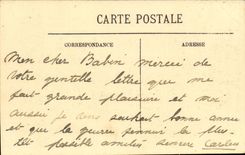 CARTE POSTALE
CORRESPONDANCE
ADRESSE
Mon cher Babin merci de
votre gentille lettre que me
fait grande plaisire et moi
aussi je vous souhait bonne anne
et que la guerre finni la plu
tôt possible amitié sincere Carlin